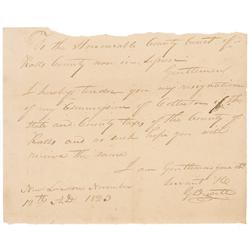 To the Honourable County Court of
Ralls County now in Session
Gentlemen
I hereby tender you my resignation
of my Commission of Collector of the
State and County taxes of the County of
Ralls and as such hope you will
receive the same
I am Gentlemen your obt
servant &c
New London November
10th AD 1823